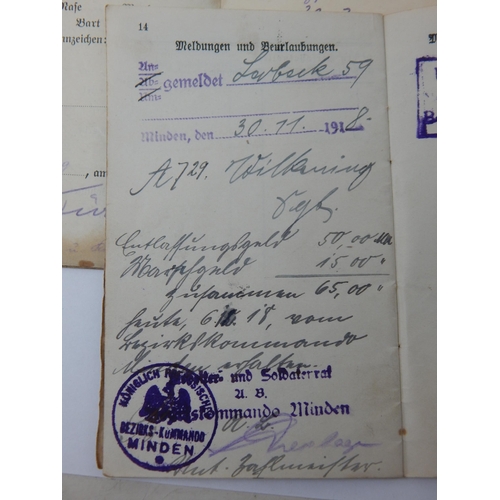 Nase
Bart
nnzeichen:
, am
14
Meldungen und Beurlaubungen.
An-
Ab- gemeldet
Um-
59
Minden, den 30.11. 1918.
A 729. Wilkening
Sgt.
Entlassungsgeld 50,00
Marschgeld 15.00 "
zusammen 65,00 "
heute, 18, vom
Bezirkskommando
Minden erhalten.
und Soldatenrat
A. B.
kommando Minden
KÖNIGLICH PREUSSISCHES
BEZIRKS-KOMMANDO
MINDEN
Zahlmeister.